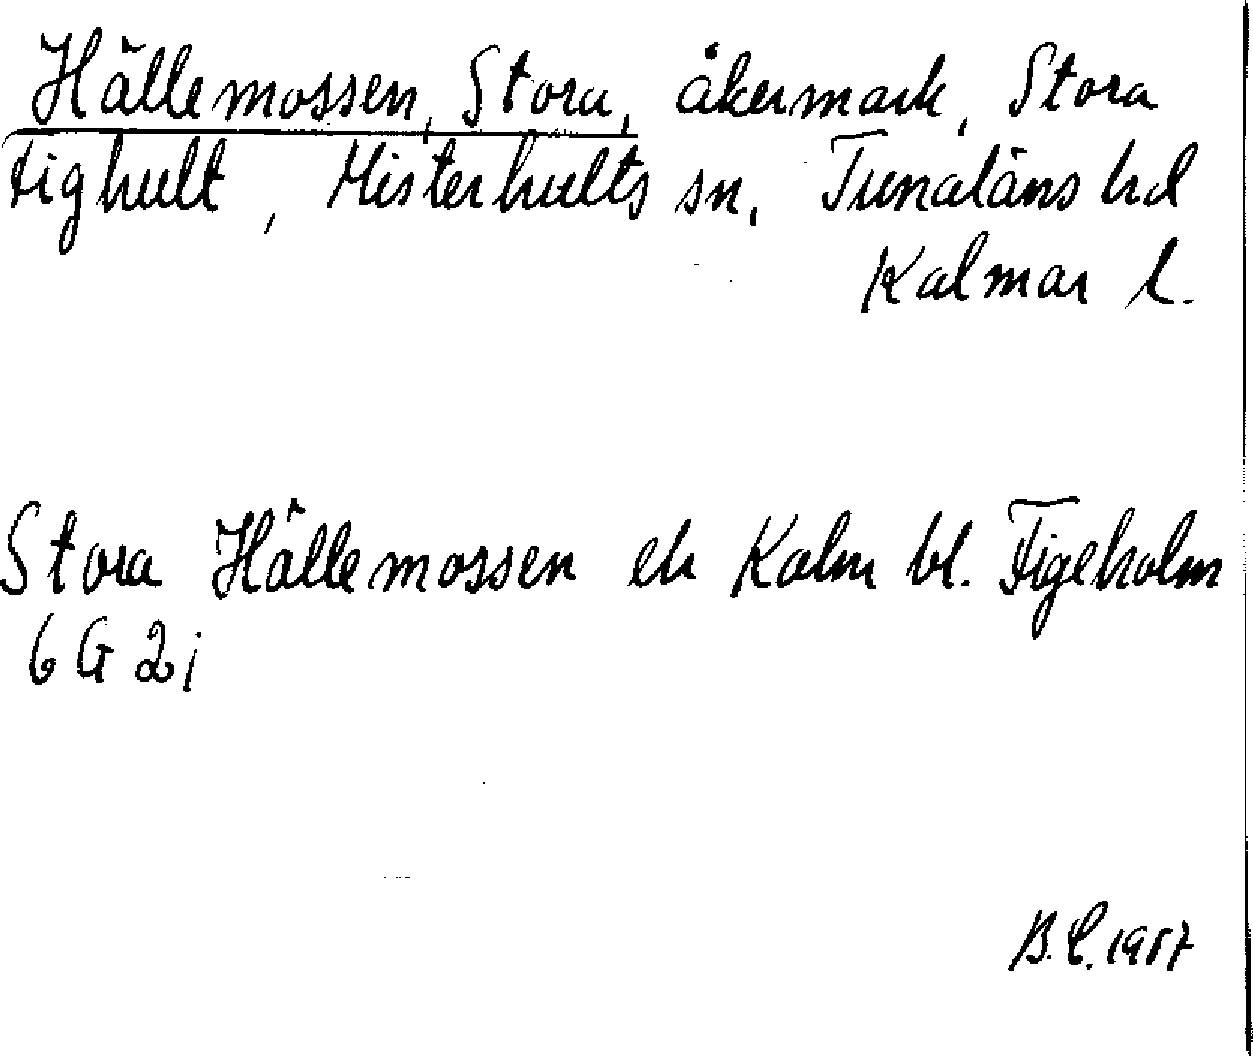 Hällemossen, Stora, åkermark, Stora
Fighult, Misterhults sn, Tunaläns hd
Kalmar l.
Stora Hällemossen ek Kalm bl. Figeholm
6 G 2 i
B.L. 1987